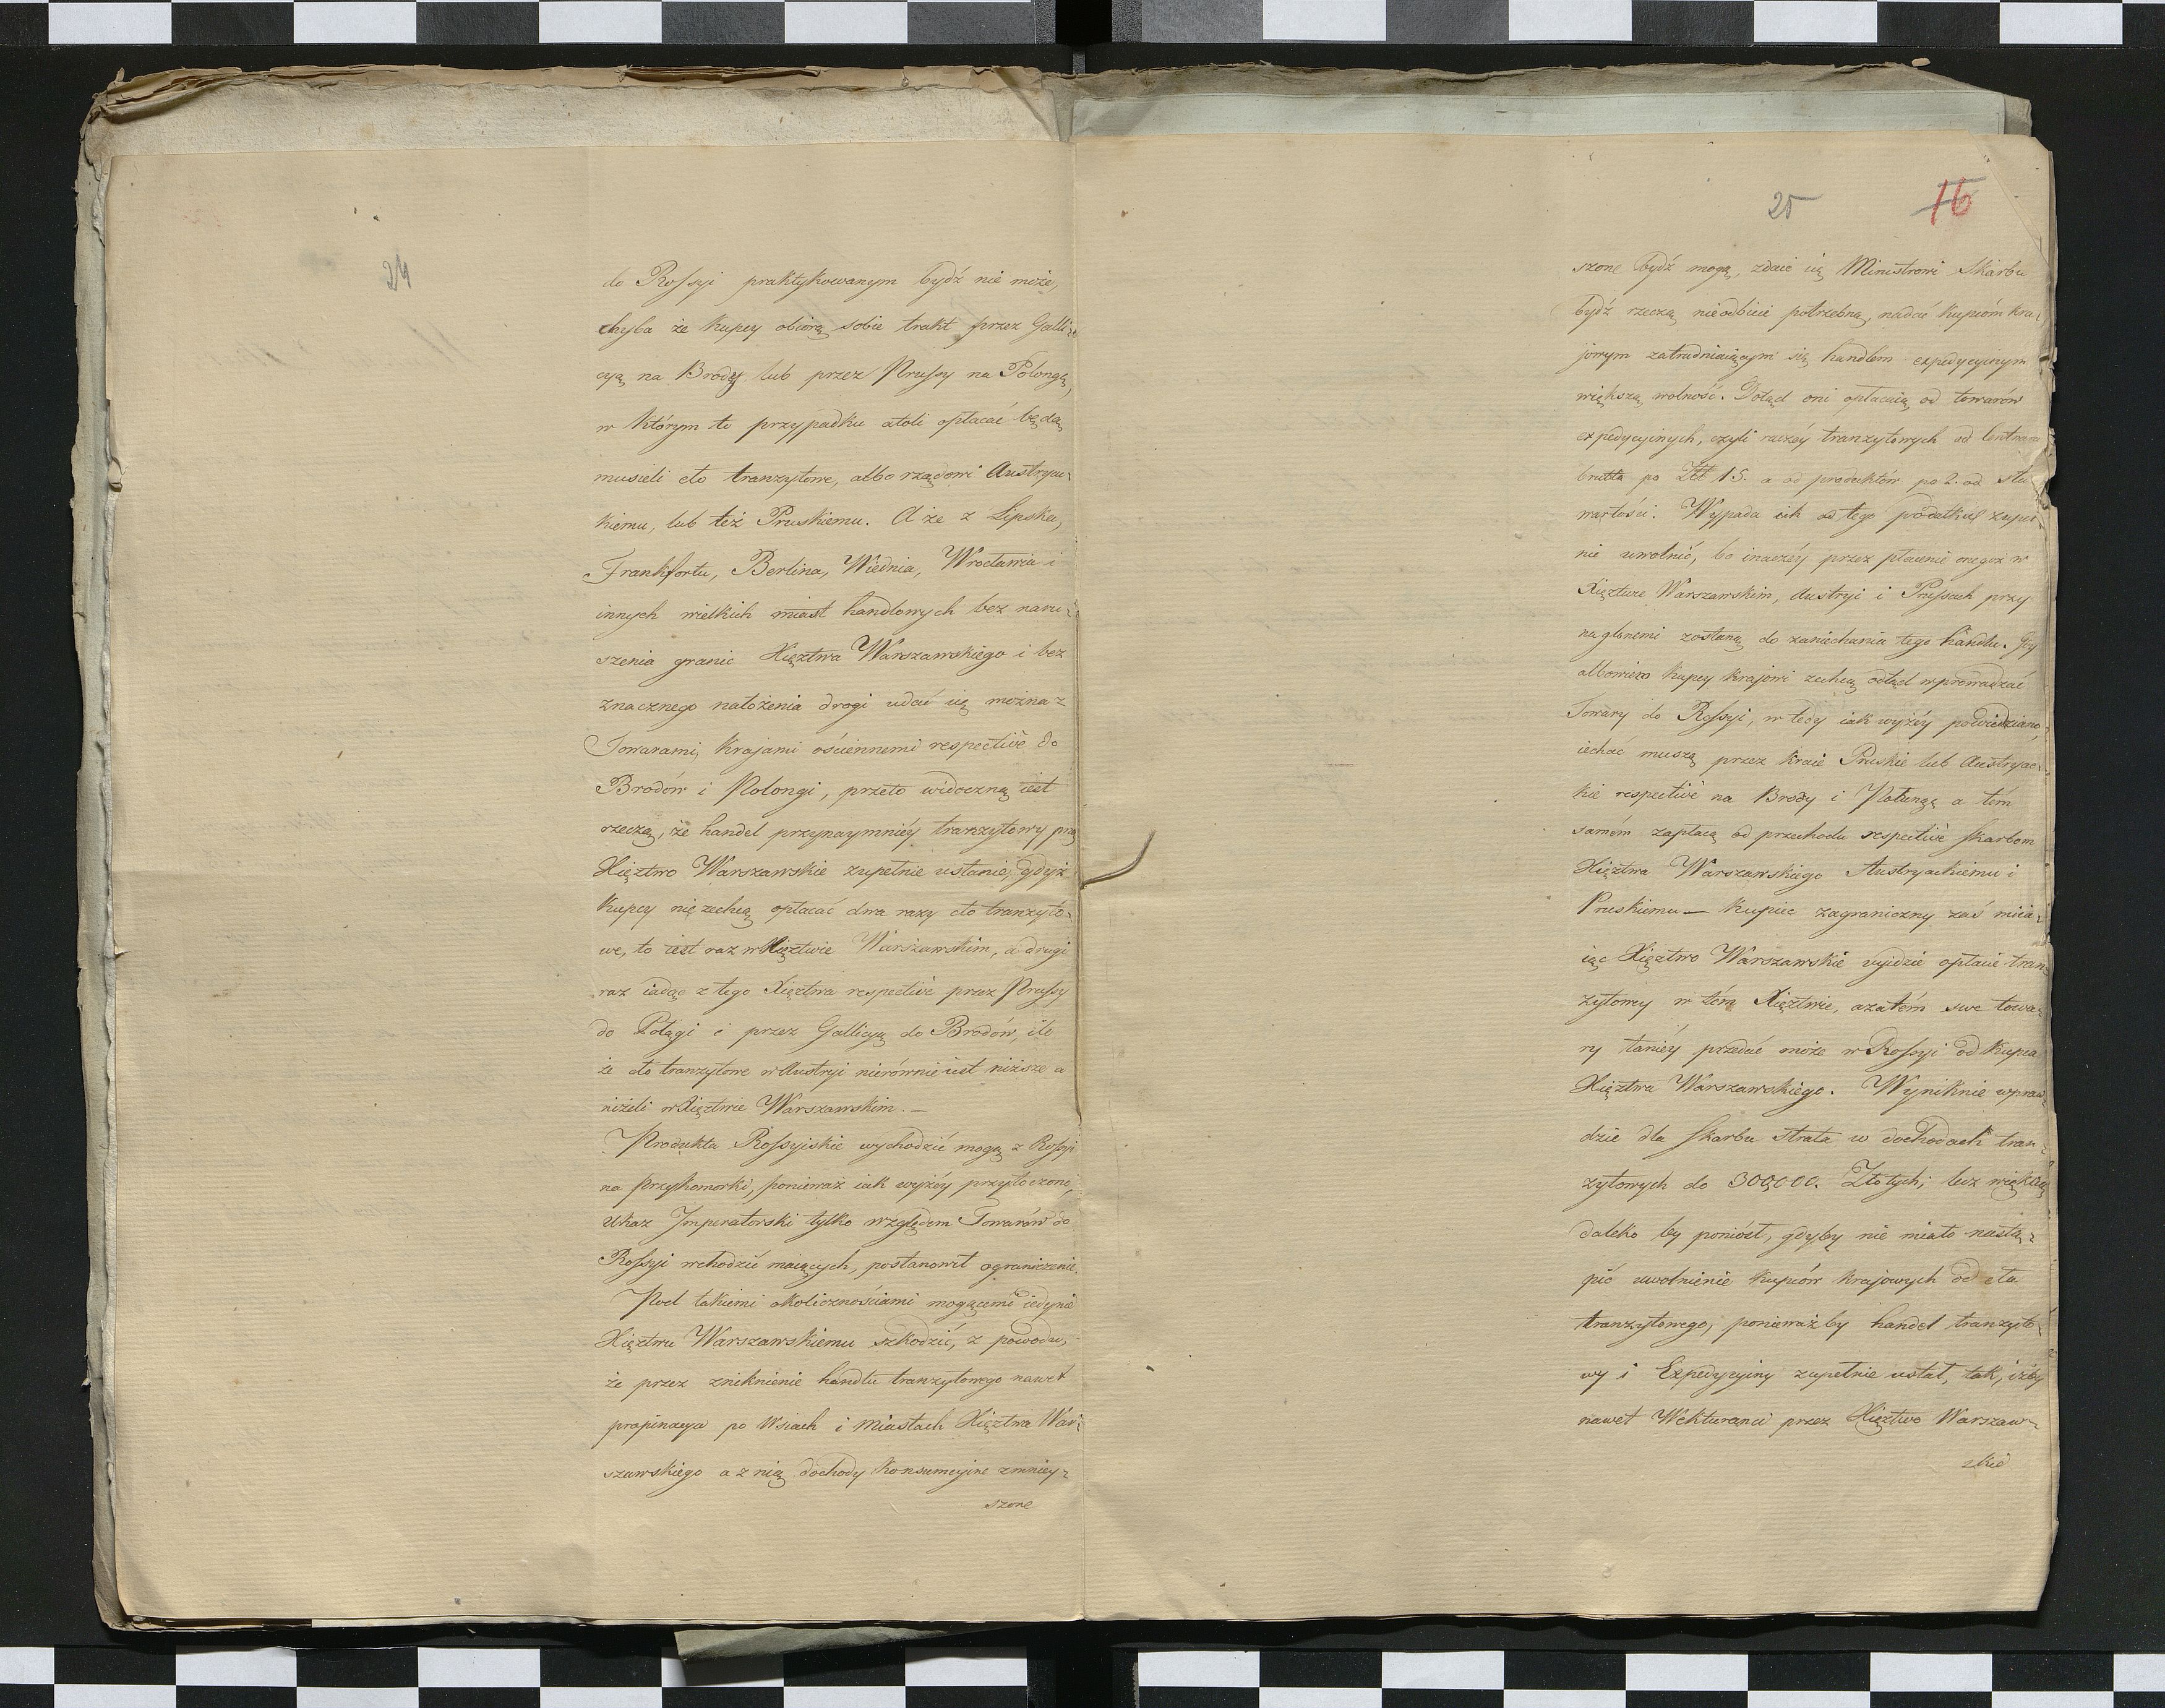 24
do Rossyi praktykowanym bydź nie może,
chyba że kupcy obiorą sobie trakt przez Galli-
cyą na Brody lub przez Prussy na Polongę,
w którym to przypadku atoli opłacać będą
musieli cło tranzytowe, albo rządowi Austryac-
kiemu, lub też Pruskiemu. A że z Lipska,
Frankfortu, Berlina, Wiednia, Wrocławia i
innych wielkich miast handlowych bez naru-
szenia granic Xięztwa Warszawskiego i bez
znacznego nałożenia drogi udać się można z
Towarami, krajami ościennemi respective do
Brodów i Polongi, przeto widoczną iest
rzeczą, że handel przynaymniéy tranzytowy przez
Xięztwo Warszawskie zupełnie ustanie, gdyż
kupcy nie zechcą opłacać dwa razy cło tranzyto-
we, to iest raz w Xięztwie Warszawskim, a drugi
raz iadąc z tego Xięztwa respective przez Prussy
do Połągi i przez Gallicyą do Brodów, ile
że cło tranzytowe w Austryi nierównie iest niższe a
niżeli w Xięztwie Warszawskim. —
Produkta Rossyiskie wychodzić mogą z Rossyi
na przykomorki, ponieważ iak wyżéy przytoczono,
Ukaz Imperatorski tylko względem Towarów do
Rossyi wchodzić maiących, postanowił ograniczenie.
Pod takiemi okolicznościami mogącemi iedynie
Xięztwu Warszawskiemu szkodzić, z powodu,
że przez zniknienie handlu tranzytowego nawet
propinacya po Wsiach i Miastach Xięztwa War-
szawskiego a z nią dochody Konsumcyine zmniey-
szone
25
16
szone bydź mogą, zdaie się Ministrowi Skarbu
bydź rzeczą nieodbicie potrzebną, nadać kupcóm kra-
jowym zatrudniaiącym się handlem expedycyinym
większą wolność. Dotąd oni opłacaią od towarów
expedycyinych, czyli raczéy tranzytowych od Centnara
brutta po Złł 15. a od produktów po 2. od sta
wartości. Wypada ich od tego podatku zupeł-
nie uwolnić, bo inaczéy przez płacenie onegoż w
Xięztwie Warszawskim, Austryi i Prussach przy
naglonemi zostaną do zaniechania tego handlu. Gdy
albowiem kupcy krajowi zechcą odtąd wprowadzać
Towary do Rossyi, w tedy iak wyżéy powiedziano,
iechać muszą przez kraie Pruskie lub Austryac-
kie respective na Brody i Połongę a tém
samém zapłacą od przechodu respective skarbom
Xięztwa Warszawskiego Austryackiemu i
Pruskiemu — Kupiec zagraniczny zaś miia-
iąc Xięztwo Warszawskie uyidzie opłacie tran-
zytowey w tém Xięztwie, azatém swe towa-
ry taniéy przedać może w Rossyi od Kupca
Xięztwa Warszawskiego. Wyniknie wpraw-
dzie dla skarbu strata w dochodach tran-
zytowych do 300,000. Złotych; lecz większą
daleko by poniósł, gdyby nie miało nastą-
pić uwolnienie kupców krajowych od cła
tranzytowego, ponieważby handel tranzyto-
wy i Expedycyiny zupełnie ustał, tak, iżby
nawet Wekturanci przez Xięztwo Warszaw-
skie